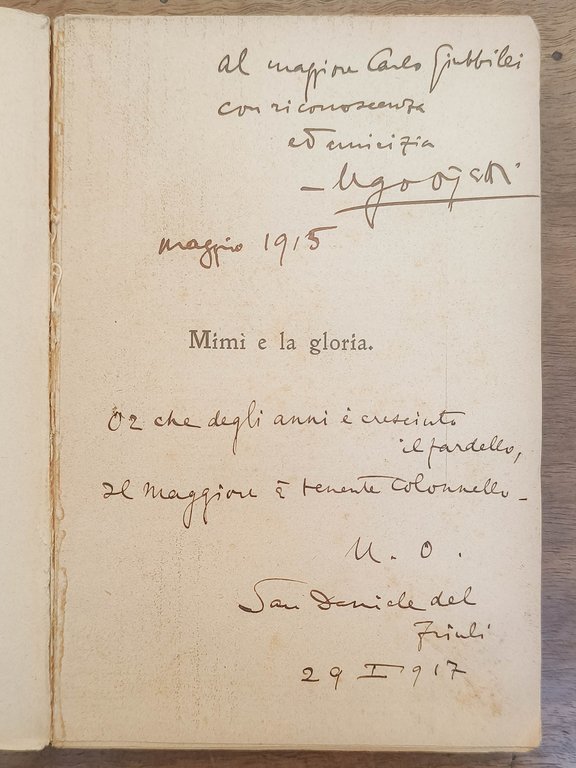 Al maggiore Carlo Giubbilei
con riconoscenza
ed amicizia
– Ugo Ojetti
maggio 1915
Mimì e la gloria.
Or che degli anni è cresciuto
il fardello,
Il Maggiore è tenente colonnello –
U. O.
San Daniele del
Friuli
29 I 917